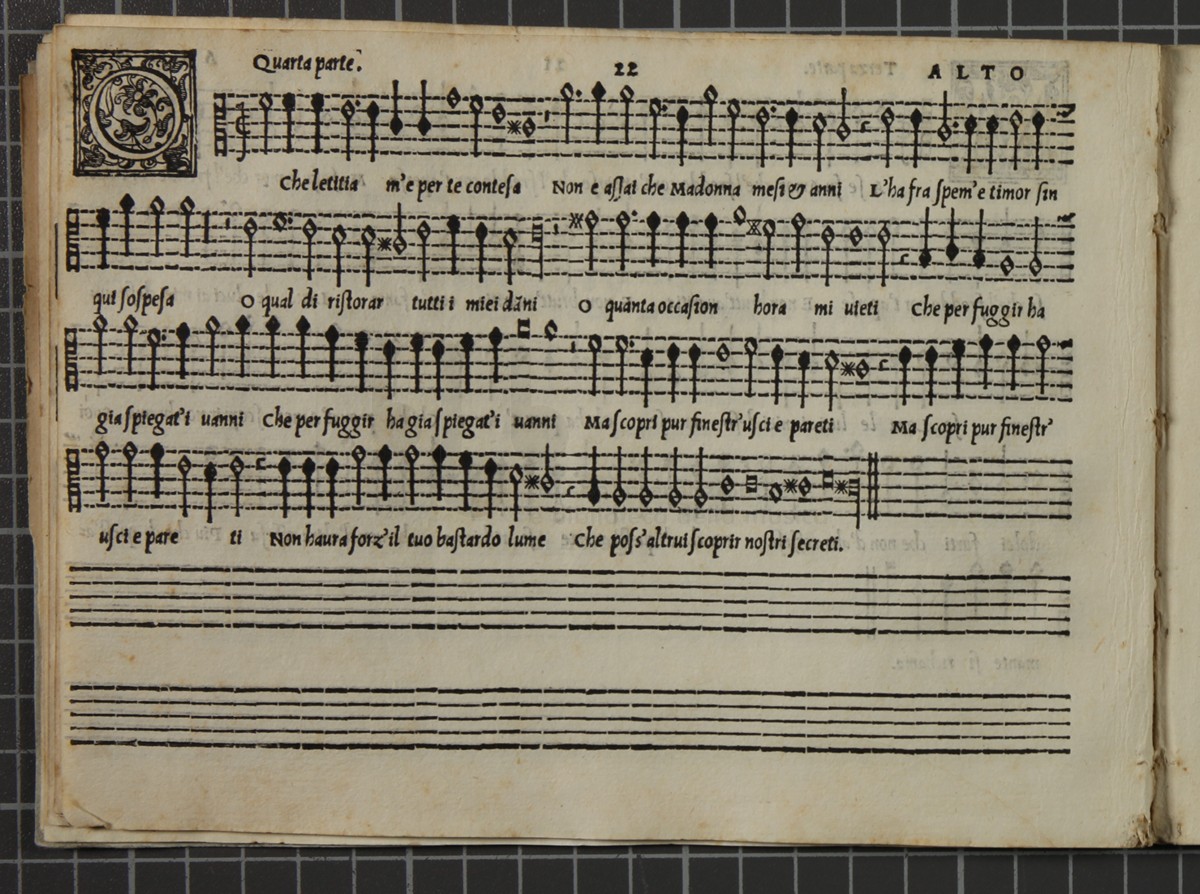 Quarta parte. 22 ALTO
O Che letitia m'e per te contesa Non e assai che Madonna mesi & anni L'ha fra spem'e timor sin
qui sospesa O qual di ristorar tutti i miei dãni O quãnta occasion hora mi uieti Che per fuggir ha
gia spiegat'i uanni Che per fuggir ha gia spiegat'i uanni Ma scopri pur finestr'usci e pareti Ma scopri pur finestr'
usci e pare ti Non haura forz'il tuo bastardo lume Che poss'altrui scoprir nostri secreti.